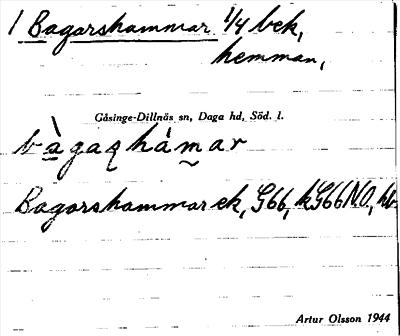 1 Bagarshammar 1/4 bek,
hemman,
Gåsinge-Dillnäs sn, Daga hd, Söd. l.
bàgaʂhámar
Bagarshammar ek, G66, kG66NO, hb
Artur Olsson 1944